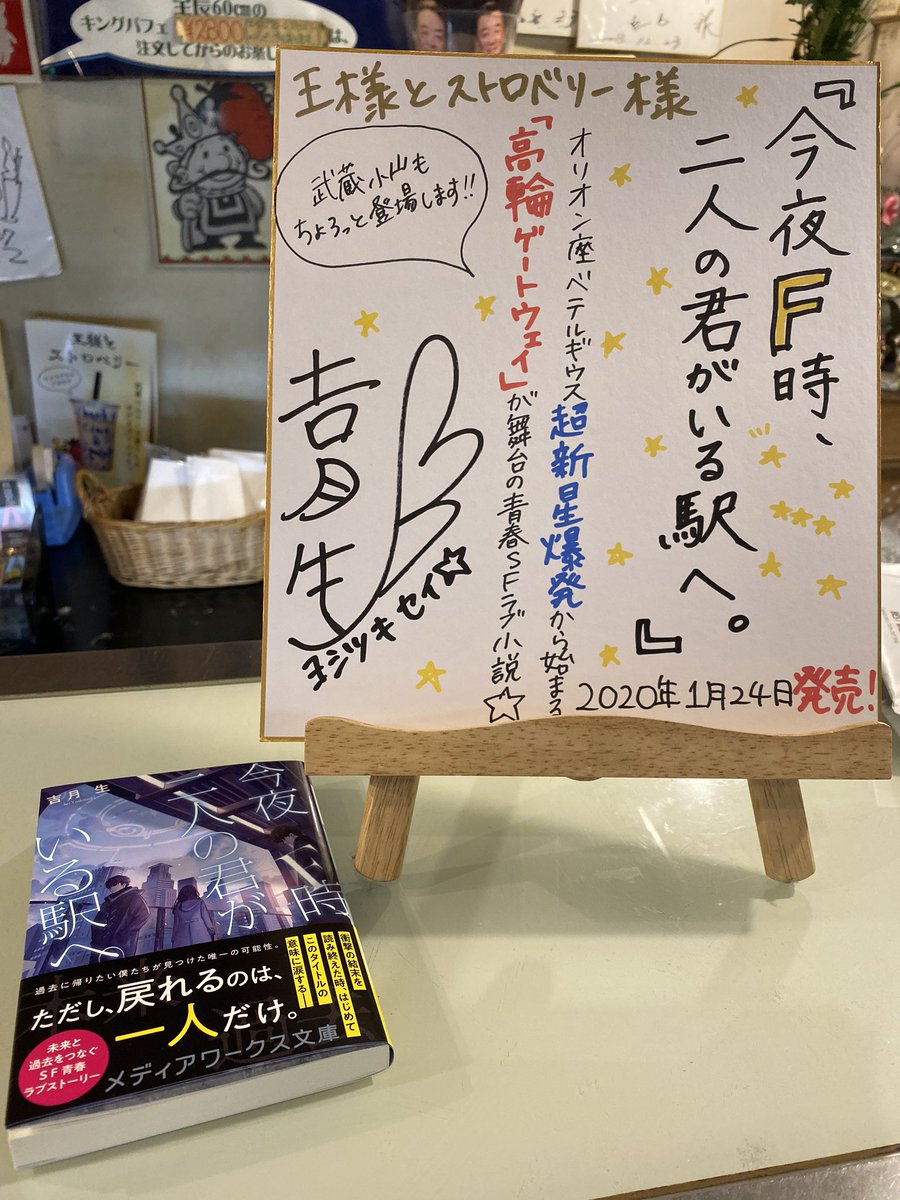 全長60cmの
キングパフェ
¥2800
注文してからのお楽し
王様とストロベリー様
『今夜F時、
二人の君がいる駅へ。』
オリオン座ベテルギウス超新星爆発から始まる
「高輪ゲートウェイ」が舞台の青春SFラブ小説☆
武蔵小山も
ちょろっと登場します!!
吉月生
ヨシヅキセイ☆
2020年1月24日発売!
王様と
ストロベリー
吉月 生
今夜F時、
二人の君が
いる駅へ。
衝撃の結末を
読み終えた時、はじめて
このタイトルの
意味に涙する―
過去に帰りたい僕たちが見つけた唯一の可能性。
ただし、戻れるのは、
一人だけ。
未来と
過去をつなぐ
SF青春
ラブストーリー
メディアワークス文庫